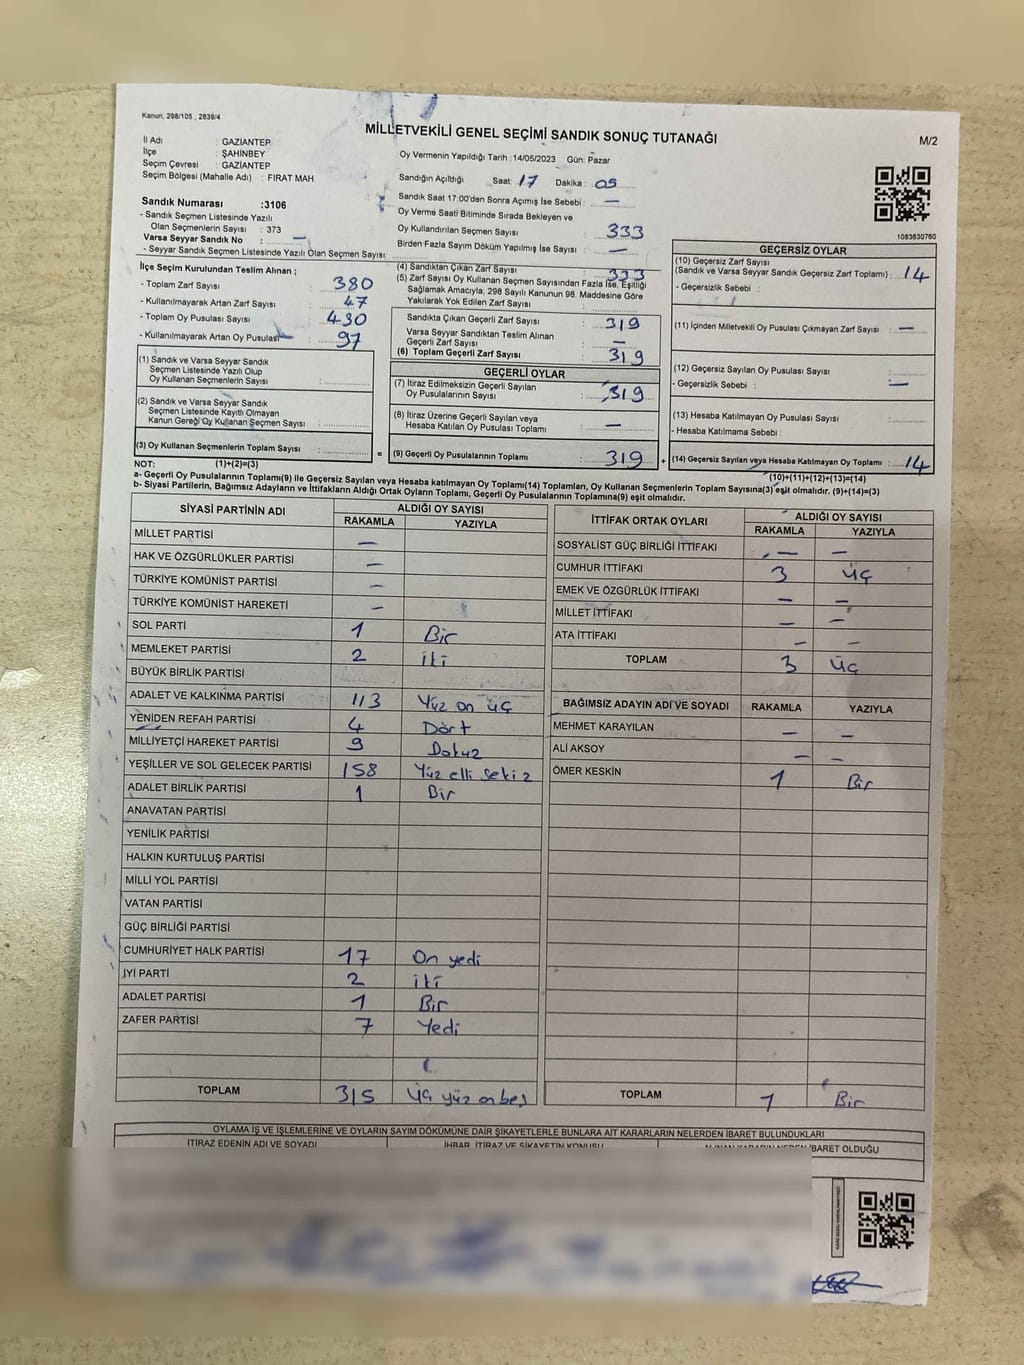 Kanun; 298/105 , 2839/4
MİLLETVEKİLİ GENEL SEÇİMİ SANDIK SONUÇ TUTANAĞI
M/2
İl Adı : GAZİANTEP
İlçe : ŞAHİNBEY
Seçim Çevresi : GAZİANTEP
Seçim Bölgesi (Mahalle Adı) : FIRAT MAH.
Oy Vermenin Yapıldığı Tarih : 14/05/2023 Gün: Pazar
Sandığın Açıldığı Saat: 17 Dakika : 05
Sandık Saat 17:00'den Sonra Açımış İse Sebebi : —
Oy Verme Saati Bitiminde Sırada Bekleyen ve
Oy Kullandırılan Seçmen Sayısı : 333
Birden Fazla Sayım Döküm Yapılmış İse Sayısı : —
1083630760
Sandık Numarası :3106
- Sandık Seçmen Listesinde Yazılı
Olan Seçmenlerin Sayısı : 373
Varsa Seyyar Sandık No : —
- Seyyar Sandık Seçmen Listesinde Yazılı Olan Seçmen Sayısı
İlçe Seçim Kurulundan Teslim Alınan ;
- Toplam Zarf Sayısı : 380
- Kullanılmayarak Artan Zarf Sayısı : 47
- Toplam Oy Pusulası Sayısı : 430
- Kullanılmayarak Artan Oy Pusulası : 97
(1) Sandık ve Varsa Seyyar Sandık
Seçmen Listesinde Yazılı Olup
Oy Kullanan Seçmenlerin Sayısı :
(2) Sandık ve Varsa Seyyar Sandık
Seçmen Listesinde Kayıtlı Olmayan
Kanun Gereği Oy Kullanan Seçmen Sayısı :
(3) Oy Kullanan Seçmenlerin Toplam Sayısı :
(4) Sandıktan Çıkan Zarf Sayısı : 333
(5) Zarf Sayısı Oy Kullanan Seçmen Sayısından Fazla İse, Eşitliği
Sağlamak Amacıyla, 298 Sayılı Kanunun 98. Maddesine Göre
Yakılarak Yok Edilen Zarf Sayısı :
Sandıkta Çıkan Geçerli Zarf Sayısı : 319
Varsa Seyyar Sandıktan Teslim Alınan
Geçerli Zarf Sayısı : —
(6) Toplam Geçerli Zarf Sayısı : 319
GEÇERLİ OYLAR
(7) İtiraz Edilmeksizin Geçerli Sayılan
Oy Pusulalarının Sayısı : 319
(8) İtiraz Üzerine Geçerli Sayılan veya
Hesaba Katılan Oy Pusulası Toplamı : —
= (9) Geçerli Oy Pusulalarının Toplamı : 319 +
GEÇERSİZ OYLAR
(10) Geçersiz Zarf Sayısı
(Sandık ve Varsa Seyyar Sandık Geçersiz Zarf Toplamı) : 14
- Geçersizlik Sebebi :
(11) İçinden Milletvekili Oy Pusulası Çıkmayan Zarf Sayısı : —
(12) Geçersiz Sayılan Oy Pusulası Sayısı :
- Geçersizlik Sebebi : —
(13) Hesaba Katılmayan Oy Pusulası Sayısı :
- Hesaba Katılmama Sebebi :
(14) Geçersiz Sayılan veya Hesaba Katılmayan Oy Toplamı : 14
NOT: (1)+(2)=(3) (10)+(11)+(12)+(13)=(14)
a- Geçerli Oy Pusulalarının Toplamı(9) ile Geçersiz Sayılan veya Hesaba katılmayan Oy Toplamı(14) Toplamları, Oy Kullanan Seçmenlerin Toplam Sayısına(3) eşit olmalıdır. (9)+(14)=(3)
b- Siyasi Partilerin, Bağımsız Adayların ve İttifakların Aldığı Ortak Oyların Toplamı, Geçerli Oy Pusulalarının Toplamına(9) eşit olmalıdır.
SİYASİ PARTİNİN ADI ALDIĞI OY SAYISI
RAKAMLA YAZIYLA
MİLLET PARTİSİ —
HAK VE ÖZGÜRLÜKLER PARTİSİ —
TÜRKİYE KOMÜNİST PARTİSİ —
TÜRKİYE KOMÜNİST HAREKETİ —
SOL PARTİ 1 Bir
MEMLEKET PARTİSİ 2 iki
BÜYÜK BİRLİK PARTİSİ
ADALET VE KALKINMA PARTİSİ 113 Yüz on üç
YENİDEN REFAH PARTİSİ 4 Dört
MİLLİYETÇİ HAREKET PARTİSİ 9 Dokuz
YEŞİLLER VE SOL GELECEK PARTİSİ 158 Yüz elli sekiz
ADALET BİRLİK PARTİSİ 1 Bir
ANAVATAN PARTİSİ
YENİLİK PARTİSİ
HALKIN KURTULUŞ PARTİSİ
MİLLİ YOL PARTİSİ
VATAN PARTİSİ
GÜÇ BİRLİĞİ PARTİSİ
CUMHURİYET HALK PARTİSİ 17 On yedi
İYİ PARTİ 2 iki
ADALET PARTİSİ 1 Bir
ZAFER PARTİSİ 7 Yedi
TOPLAM 315 Üç yüz onbeş
İTTİFAK ORTAK OYLARI ALDIĞI OY SAYISI
RAKAMLA YAZIYLA
SOSYALİST GÜÇ BİRLİĞİ İTTİFAKI — —
CUMHUR İTTİFAKI 3 üç
EMEK VE ÖZGÜRLÜK İTTİFAKI — —
MİLLET İTTİFAKI — —
ATA İTTİFAKI — —
TOPLAM 3 üç
BAĞIMSIZ ADAYIN ADI VE SOYADI RAKAMLA YAZIYLA
MEHMET KARAYILAN — —
ALİ AKSOY — —
ÖMER KESKİN 1 Bir
TOPLAM 1 Bir
OYLAMA İŞ VE İŞLEMLERİNE VE OYLARIN SAYIM DÖKÜMÜNE DAİR ŞİKAYETLERLE BUNLARA AİT KARARLARIN NELERDEN İBARET BULUNDUKLARI
İTİRAZ EDENİN ADI VE SOYADI İHBAR, İTİRAZ VE ŞİKAYETİN KONUSU ALINAN KARARIN NEDEN İBARET OLDUĞU